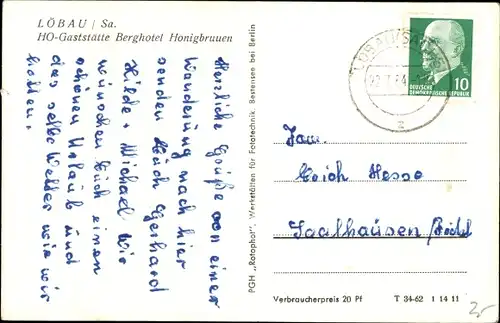 LÖBAU / Sa.
HO-Gaststätte Berghotel Honigbruuen
Herzliche Grüße von einer
Wanderung nach hier
senden Euch Gerhard
Hilde + Michael. Wir
wünschen Euch einen
schönen Urlaub und
das selbe Wetter wie wir
hatten.
PGH „Rotophot", Werkstätten für Fototechnik, Bestensee bei Berlin
LÖBAU (SACHS)
10
DEUTSCHE
DEMOKRATISCHE REPUBLIK
Fam.
Erich Hesse
Saalhausen
Verbraucherpreis 20 Pf
T 34-62 1 14 11